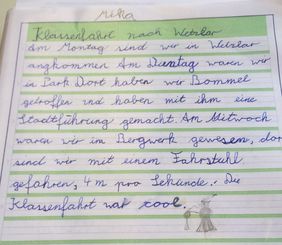 Mika
Klassenfahrt nach Wetzlar
Am Montag sind wir in Wetzlar
angkommen Am Dienstag waren wir
in Park Dort haben wir Bommel
getroffen und haben mit ihm eine
Stadtführung gemacht. Am Mitwoch
waren wir im Bergwerk gewesen, dar
sind wir mit einem Fahrstuhl
gefahren, 4 m pro Sekunde. Die
Klassenfahrt war cool.